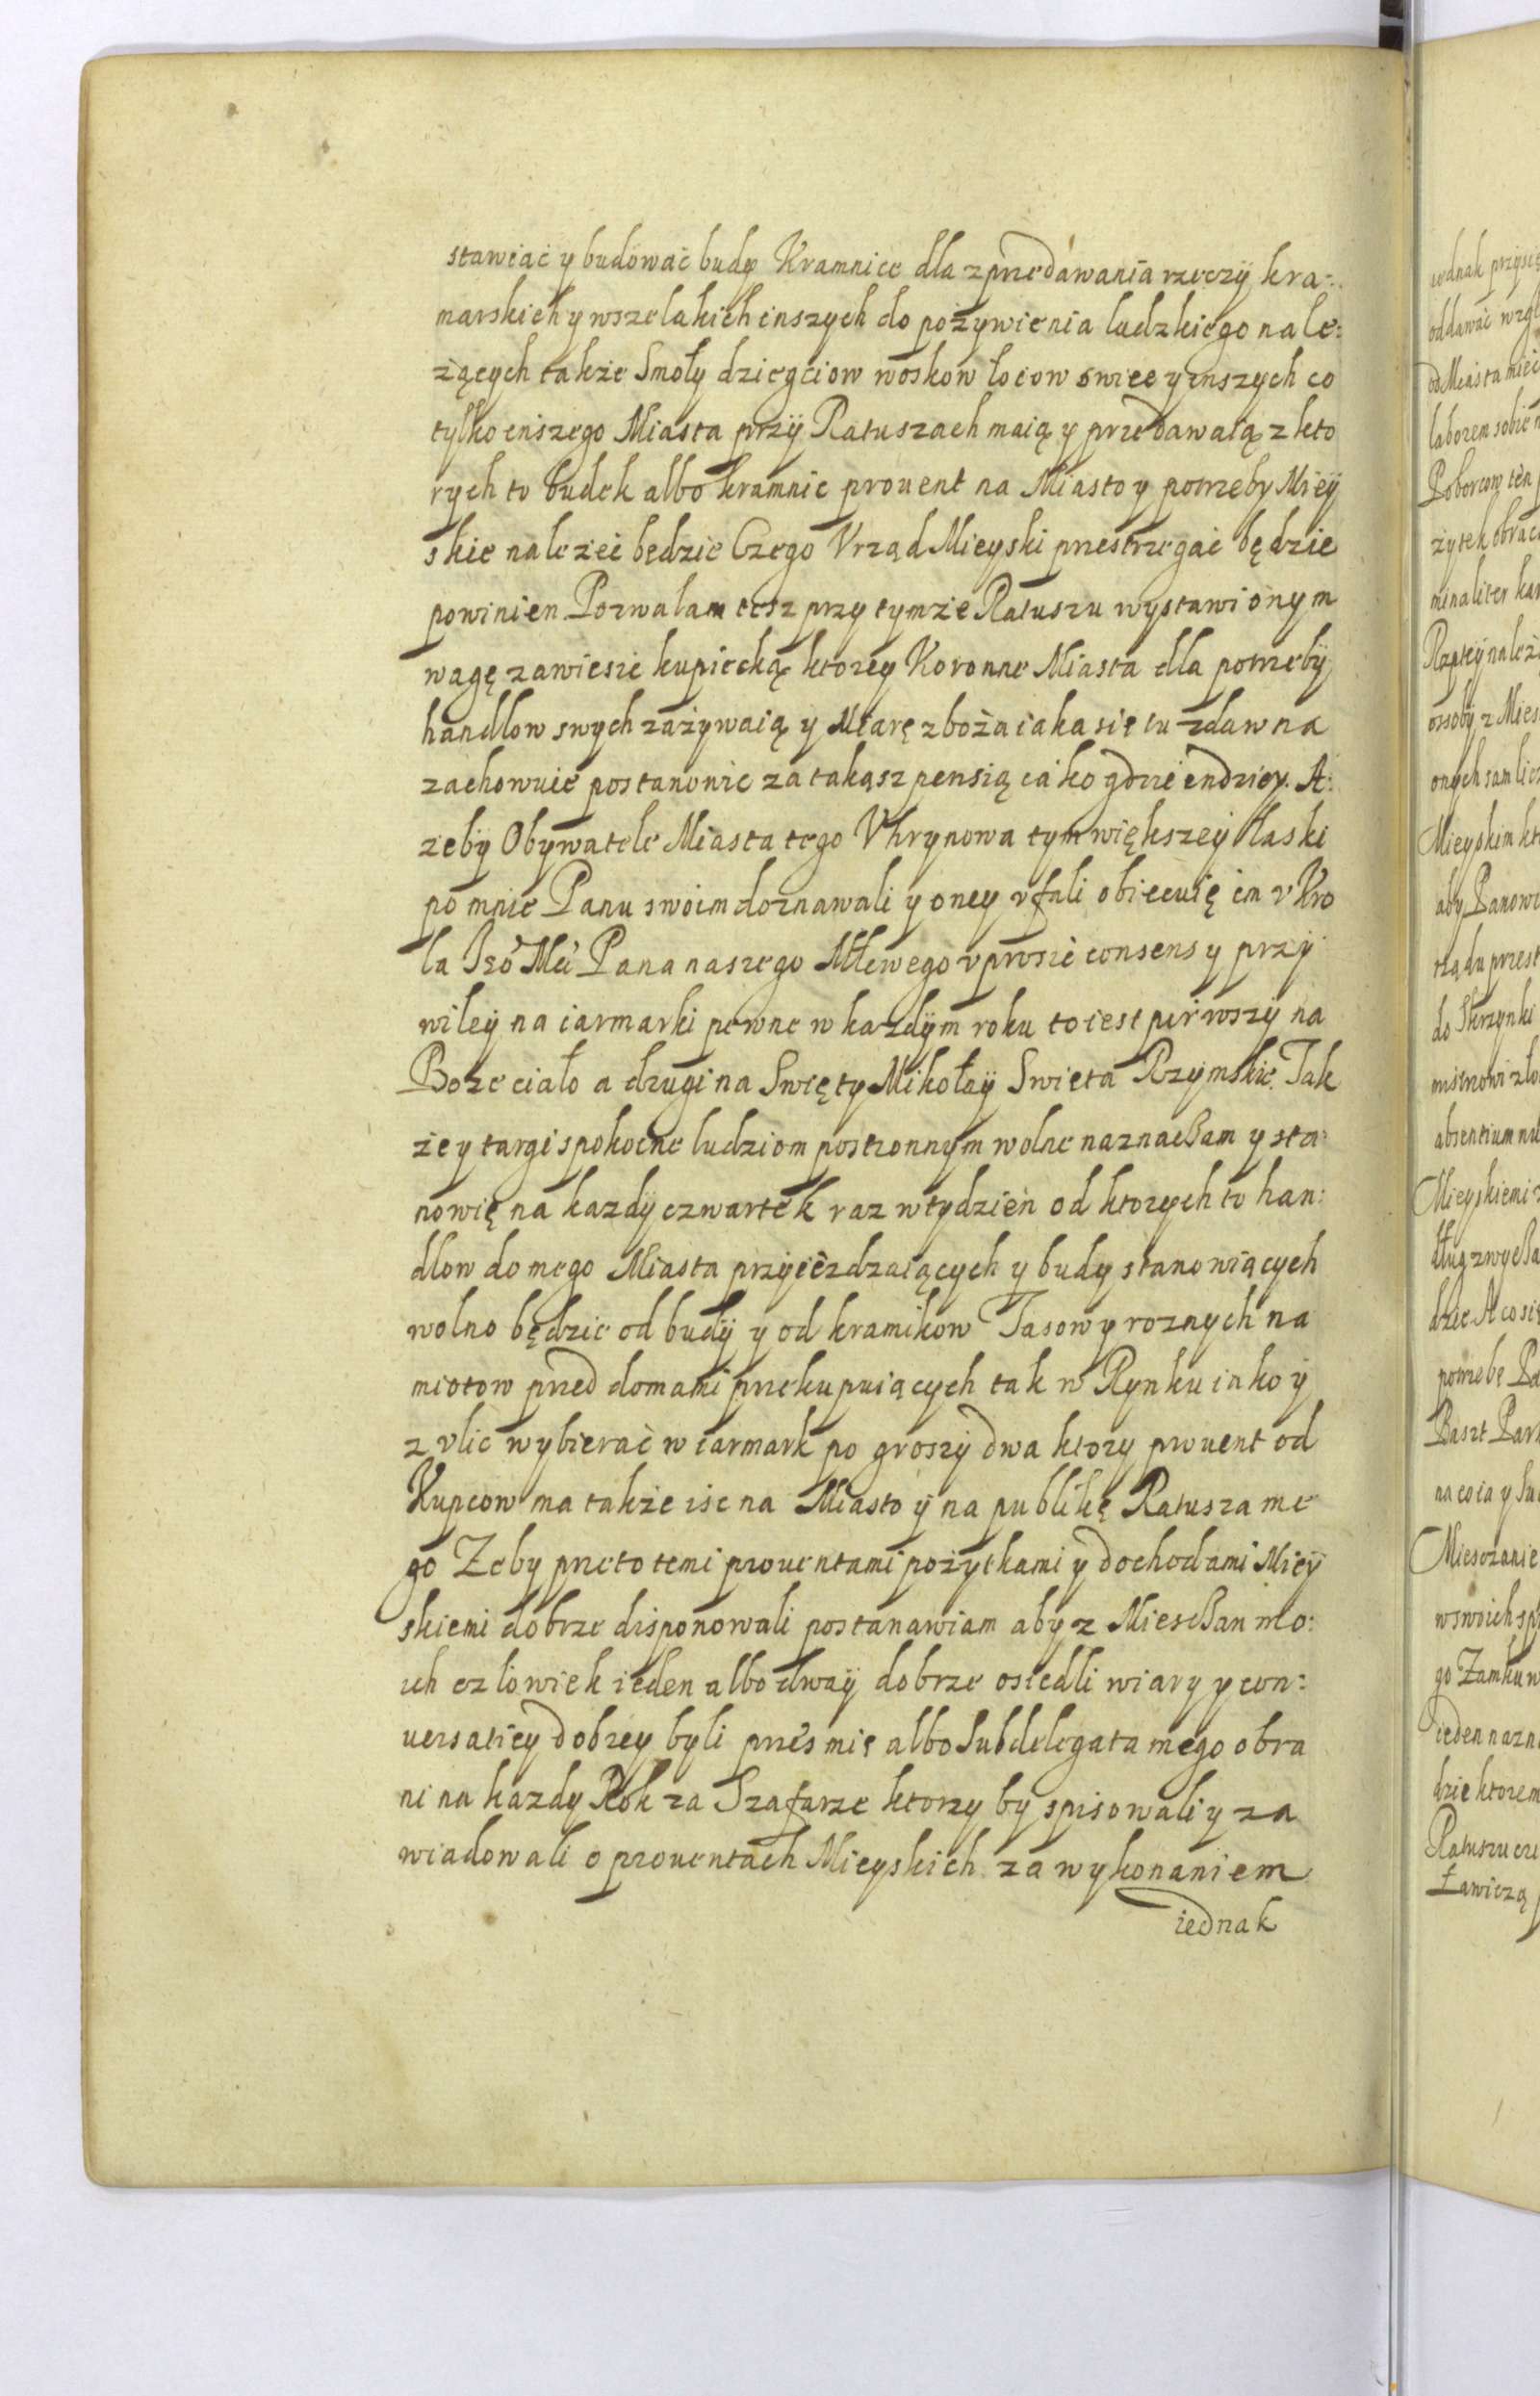 stawiać y budować budy Kramnice dla zprzedawania rzeczÿ kra:
marskich y wszelakich inszych do pożywienia ludzkiego nale:
żących także Smoły dziegciow woskow łoiow swiec y inszych co
tylko inszego Miasta przÿ Ratuszach maią y przedawaią z kto
rych to budek albo kramnic prouent na Miasto y potrzeby Mieÿ
skie należeć będzie Czego Vrząd Mieyski przestrzegać będzie
powinien Pozwalam tesz przy tymże Ratuszu wystawionym
wagę zawiesić kupiecką ktorey Koronne Miasta dla potrzebÿ
handlow swych zażywaią y Miarę zboża iaka się tu zdawna
zachowuie postanowic za takąsz pensią iako gdzie indziey. A:
żeby Obywatele Miasta tego Vhrynowa tym większeÿ łaski
po mnie Panu swoim doznawali y oney vfali obiecuię im v Kro
la Jeo Mci Pana naszego Młłwego vprosić consens y przÿ
wileÿ na iarmarki pewne w każdÿm roku to iest pierwszÿ na
Boze ciało a drugi na Swięty Mikołaÿ Swieta Rzymskie. Tak
że y targi spokoine ludziom postronnym wolne naznaczam y sta:
nowię na kazdÿ czwartek raz w tydzień od ktorych to han:
dlow do mego Miasta przyieżdzaiących y budy stanowiących
wolno będzie od budÿ y od kramikow Jasow y roznych na
miotow przed domami przekupuiących tak w Rynku iako ÿ
z vlic wybierać w iarmark po groszÿ dwa ktory prouent od
Kupcow ma także iść na Miasto ÿ na publikę Ratusza me
go Zeby przeto temi prouentami pożytkami y dochodami Mieÿ
skiemi dobrze disponowali postanawiam aby z Miesczan mo:
ich człowiek ieden albo dwaÿ dobrze osiedli wiary y con:
uersatiey dobrey byli przes mię albo Subdelegata mego obra
ni na kazdy Rok za Szafarze ktorzy bÿ spisowali y za
wiadowali o prouentach Mieyskich za wykonaniem
iednak